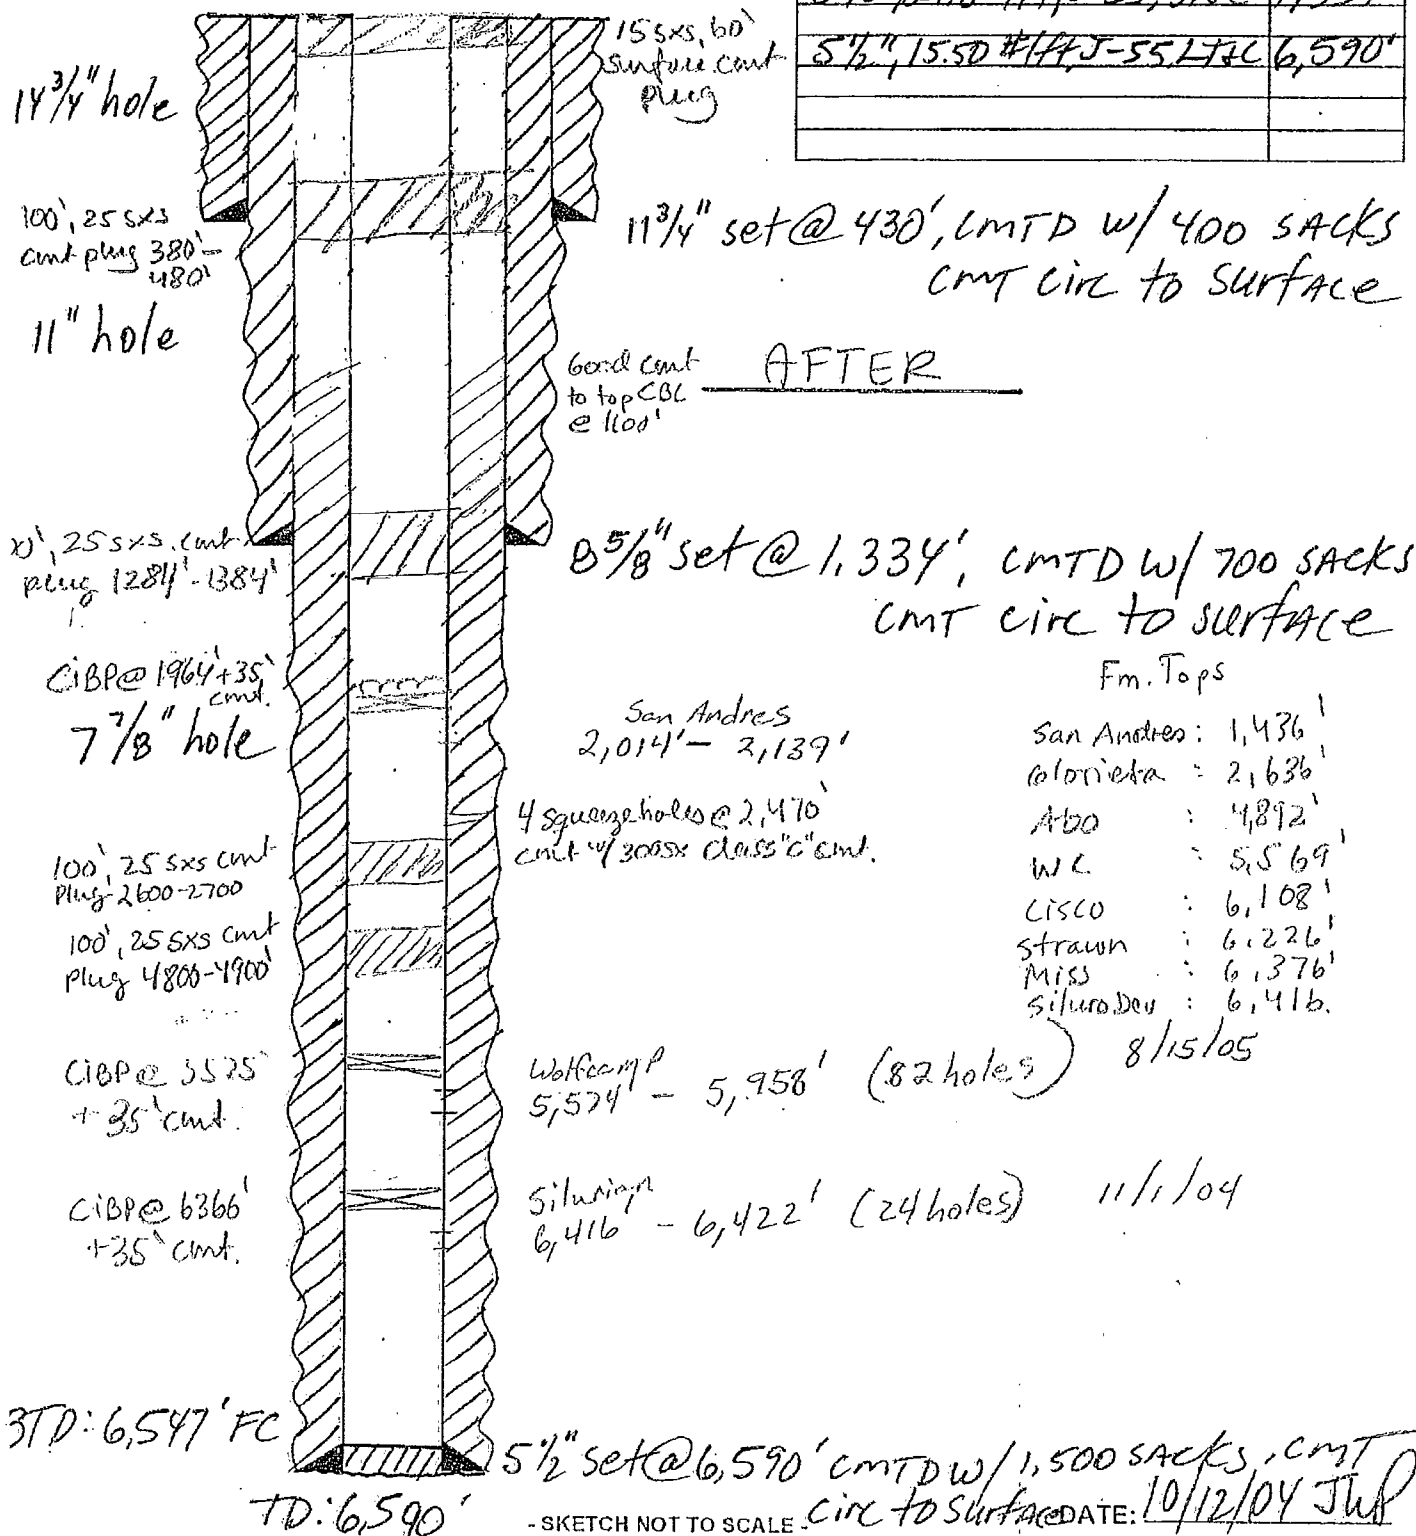 15 sxs, 60'
surface cmt
plug
5½", 15.50 #/ft, J-55 LT&C 6,590'
14 3/4" hole
100', 25 sxs
cmt plug 380'-
480'
11 3/4" set @ 430', CMTD W/ 400 SACKS
CMT Circ to SurfACe
11" hole
Good cmt
to top CBL
@ 1100'
AFTER
0', 25 sxs. cmt
plug 1284'-1384'
8 5/8" set @ 1,334', CMTD W/ 700 SACKS
CMT Circ to SurfACe
CiBP @ 1964'+35'
cmt.
7 7/8" hole
San Andres
2,014' - 2,139'
4 squeeze holes @ 2,470'
cmt w/ 300sx class "c" cmt.
100', 25 sxs cmt
Plug 2600-2700
100', 25 sxs cmt
Plug 4800-4900'
Fm. Tops
San Andres: 1,436'
Glorieta : 2,636'
Abo : 4,892'
WC : 5,569'
Cisco : 6,108'
Strawn : 6,226'
Miss : 6,376'
SiluroDev : 6,416.
CiBP @ 5525'
+35' cmt.
Wolfcamp
5,574' - 5,958' (82 holes) 8/15/05
CiBP @ 6366'
+35' cmt.
Silurian
6,416' - 6,422' (24 holes) 11/1/04
BTD: 6,547' FC
5½" set @ 6,590' CMTD W/ 1,500 SACKS, CMT
Circ to SurfACe
TD: 6,590'
- SKETCH NOT TO SCALE -
DATE: 10/12/04 JWP